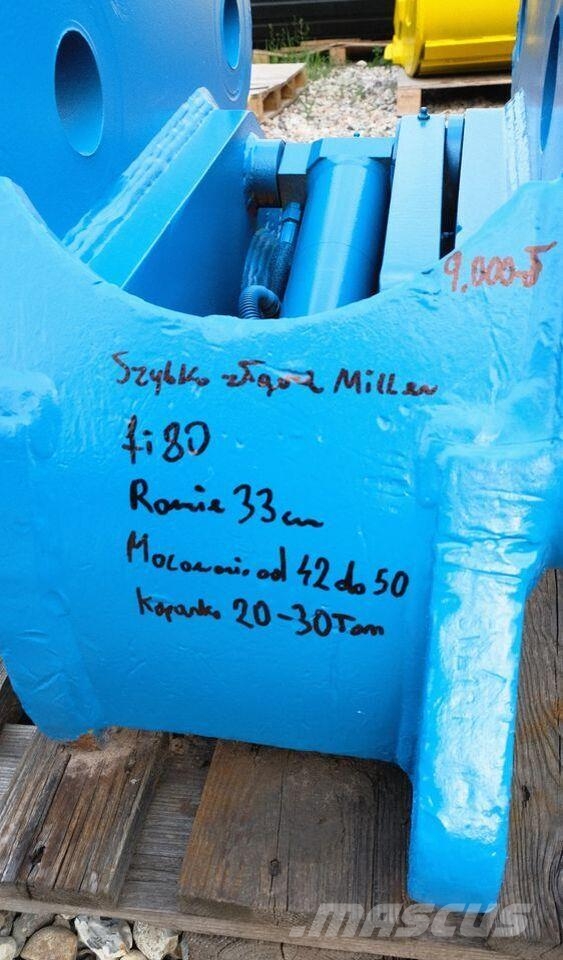 9.000-
Szybko złącz Miller
fi 80
Ramie 33 cm
Mocowanie od 42 do 50
Koparka 20-30 Ton
MASCUS